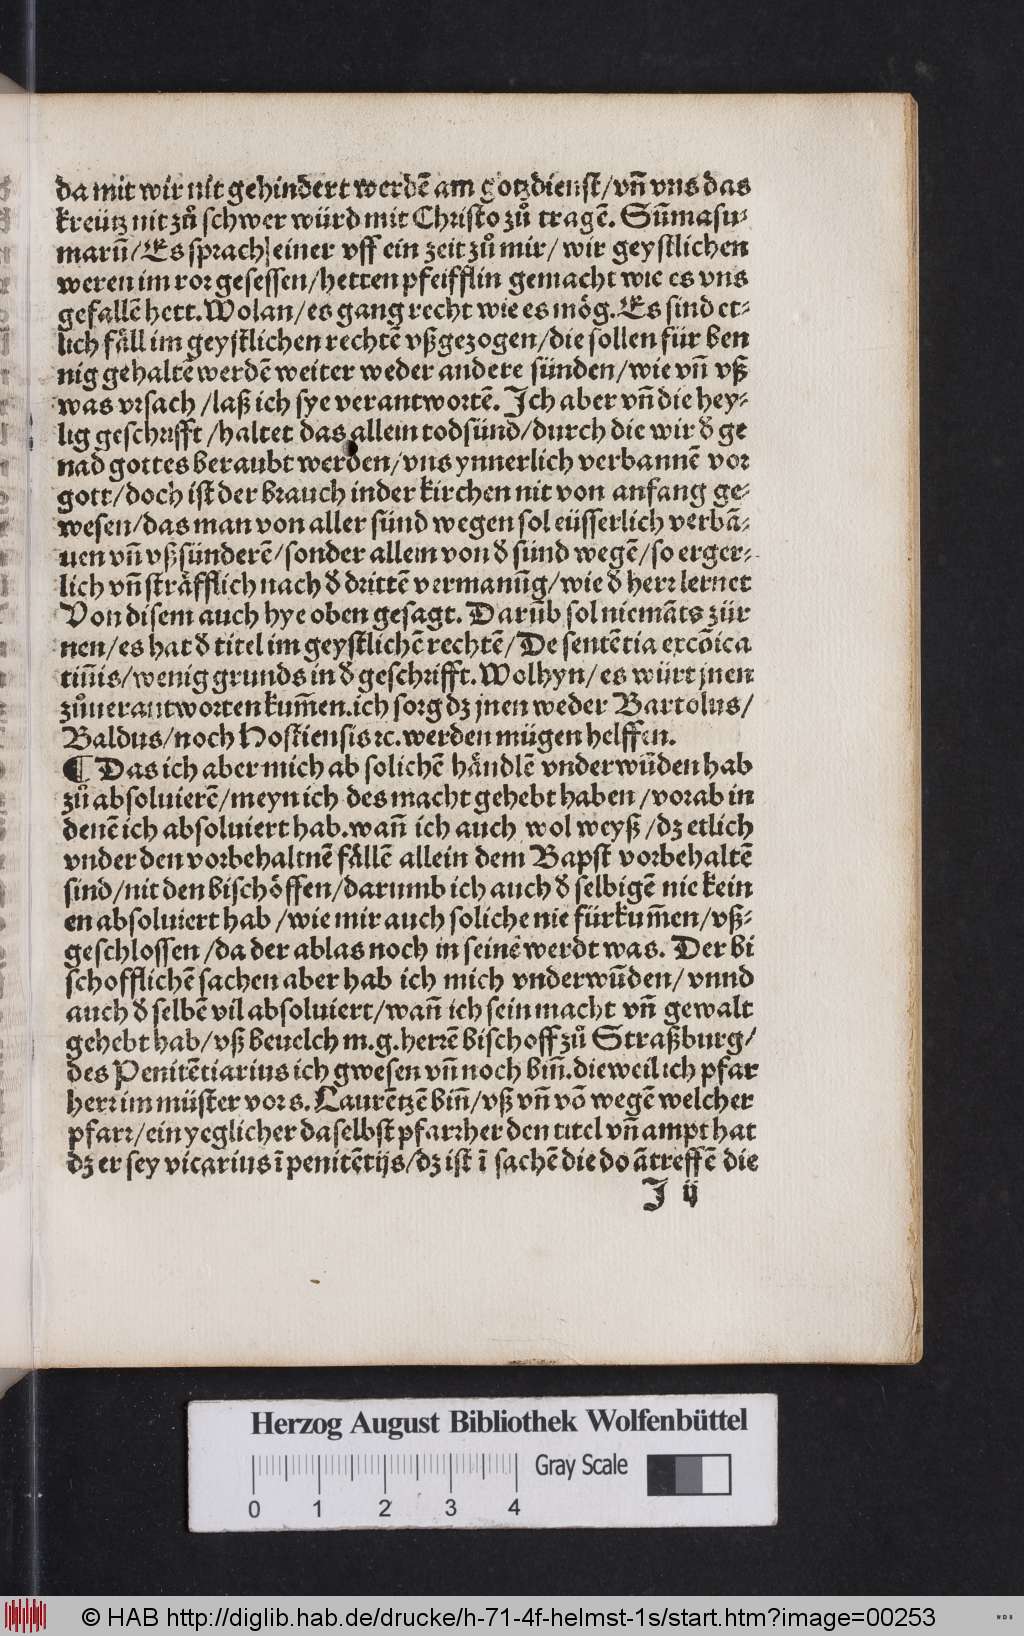 da mit wir nit gehindert werdē am gotzdienst/vn̄ vns das
kreütz nit zů schwer würd mit Christo zů tragē. Sūmasu-
marū/Es sprach einer vff ein zeit zů mir/wir geystlichen
weren im ror gesessen/hetten pfeifflin gemacht wie es vns
gefallē hett. Wolan/es gang recht wie es mög. Es sind et-
lich fäll im geystlichen rechtē vßgezogen/die sollen für ben
nig gehaltē werdē weiter weder andere sünden/wie vn̄ vß
was vrsach/laß ich sye verantwortē. Ich aber vn̄ die hey-
lig geschrifft/haltet das allein todsünd/durch die wir đ ge
nad gottes beraubt werden/vns ynnerlich verbannē vor
gott/doch ist der brauch in der kirchen nit von anfang ge-
wesen/das man von aller sünd wegen sol eüsserlich verbā-
nen vn̄ vßsünderē/sonder allein von đ sünd wegē/so erger-
lich vn̄ sträfflich nach đ drittē vermanūg/wie đ herr lernet
Von disem auch hye oben gesagt. Darūb sol niemāts zür
nen/es hat đ titel im geystlichē rechtē/De sentētia excōica
tiōnis/wenig grunds in đ geschrifft. Wolhyn/es würt jnen
zůuerantworten kum̄en. ich sorg dz jnen weder Bartolus/
Baldus/noch Hostiensis ⁊c. werden mügen helffen.
¶ Das ich aber mich ab solichē händlē vnderwūden hab
zů absoluierē/meyn ich des macht gehebt haben/vorab in
denē ich absoluiert hab. wan̄ ich auch wol weyß/dz etlich
vnder den vorbehaltnē fällē allein dem Bapst vorbehaltē
sind/nit den bischöffen/darumb ich auch đ selbigē nie kein
en absoluiert hab/wie mir auch soliche nie fürkum̄en/vß-
geschlossen/da der ablas noch in seinē werdt was. Der bi
schofflichē sachen aber hab ich mich vnderwūden/vnnd
auch đ selbē vil absoluiert/wan̄ ich sein macht vn̄ gewalt
gehebt hab/vß beuelch m.g.herrē bischoff zů Straßburg/
des Penitētiarius ich gwesen vn̄ noch bin̄. dieweil ich pfar
herr im münster vor s. Laurētzē bin̄/vß vn̄ vō wegē welcher
pfarr/ein yeglicher daselbst pfarrher den titel vn̄ ampt hat
dz er sey vicarius ī penitētijs/dz ist ī sachē die do ātreffē die
J ij
Herzog August Bibliothek Wolfenbüttel
Gray Scale
0 1 2 3 4
© HAB http://diglib.hab.de/drucke/h-71-4f-helmst-1s/start.htm?image=00253